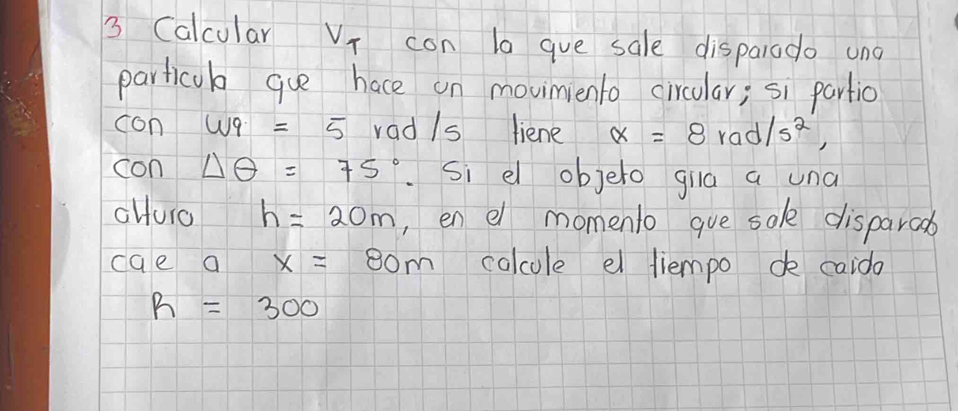 3 Calcular V_T con la que sale disparado una
particula que hace un movimiento circular; si partio
con W9 = 5 rad/s tiene α = 8 rad/s²,
con Δθ = 75°. Si el objeto gira a una
altura h = 20m, en el momento que sale disparado
cae a x = 80m calcule el tiempo de caida
R = 300